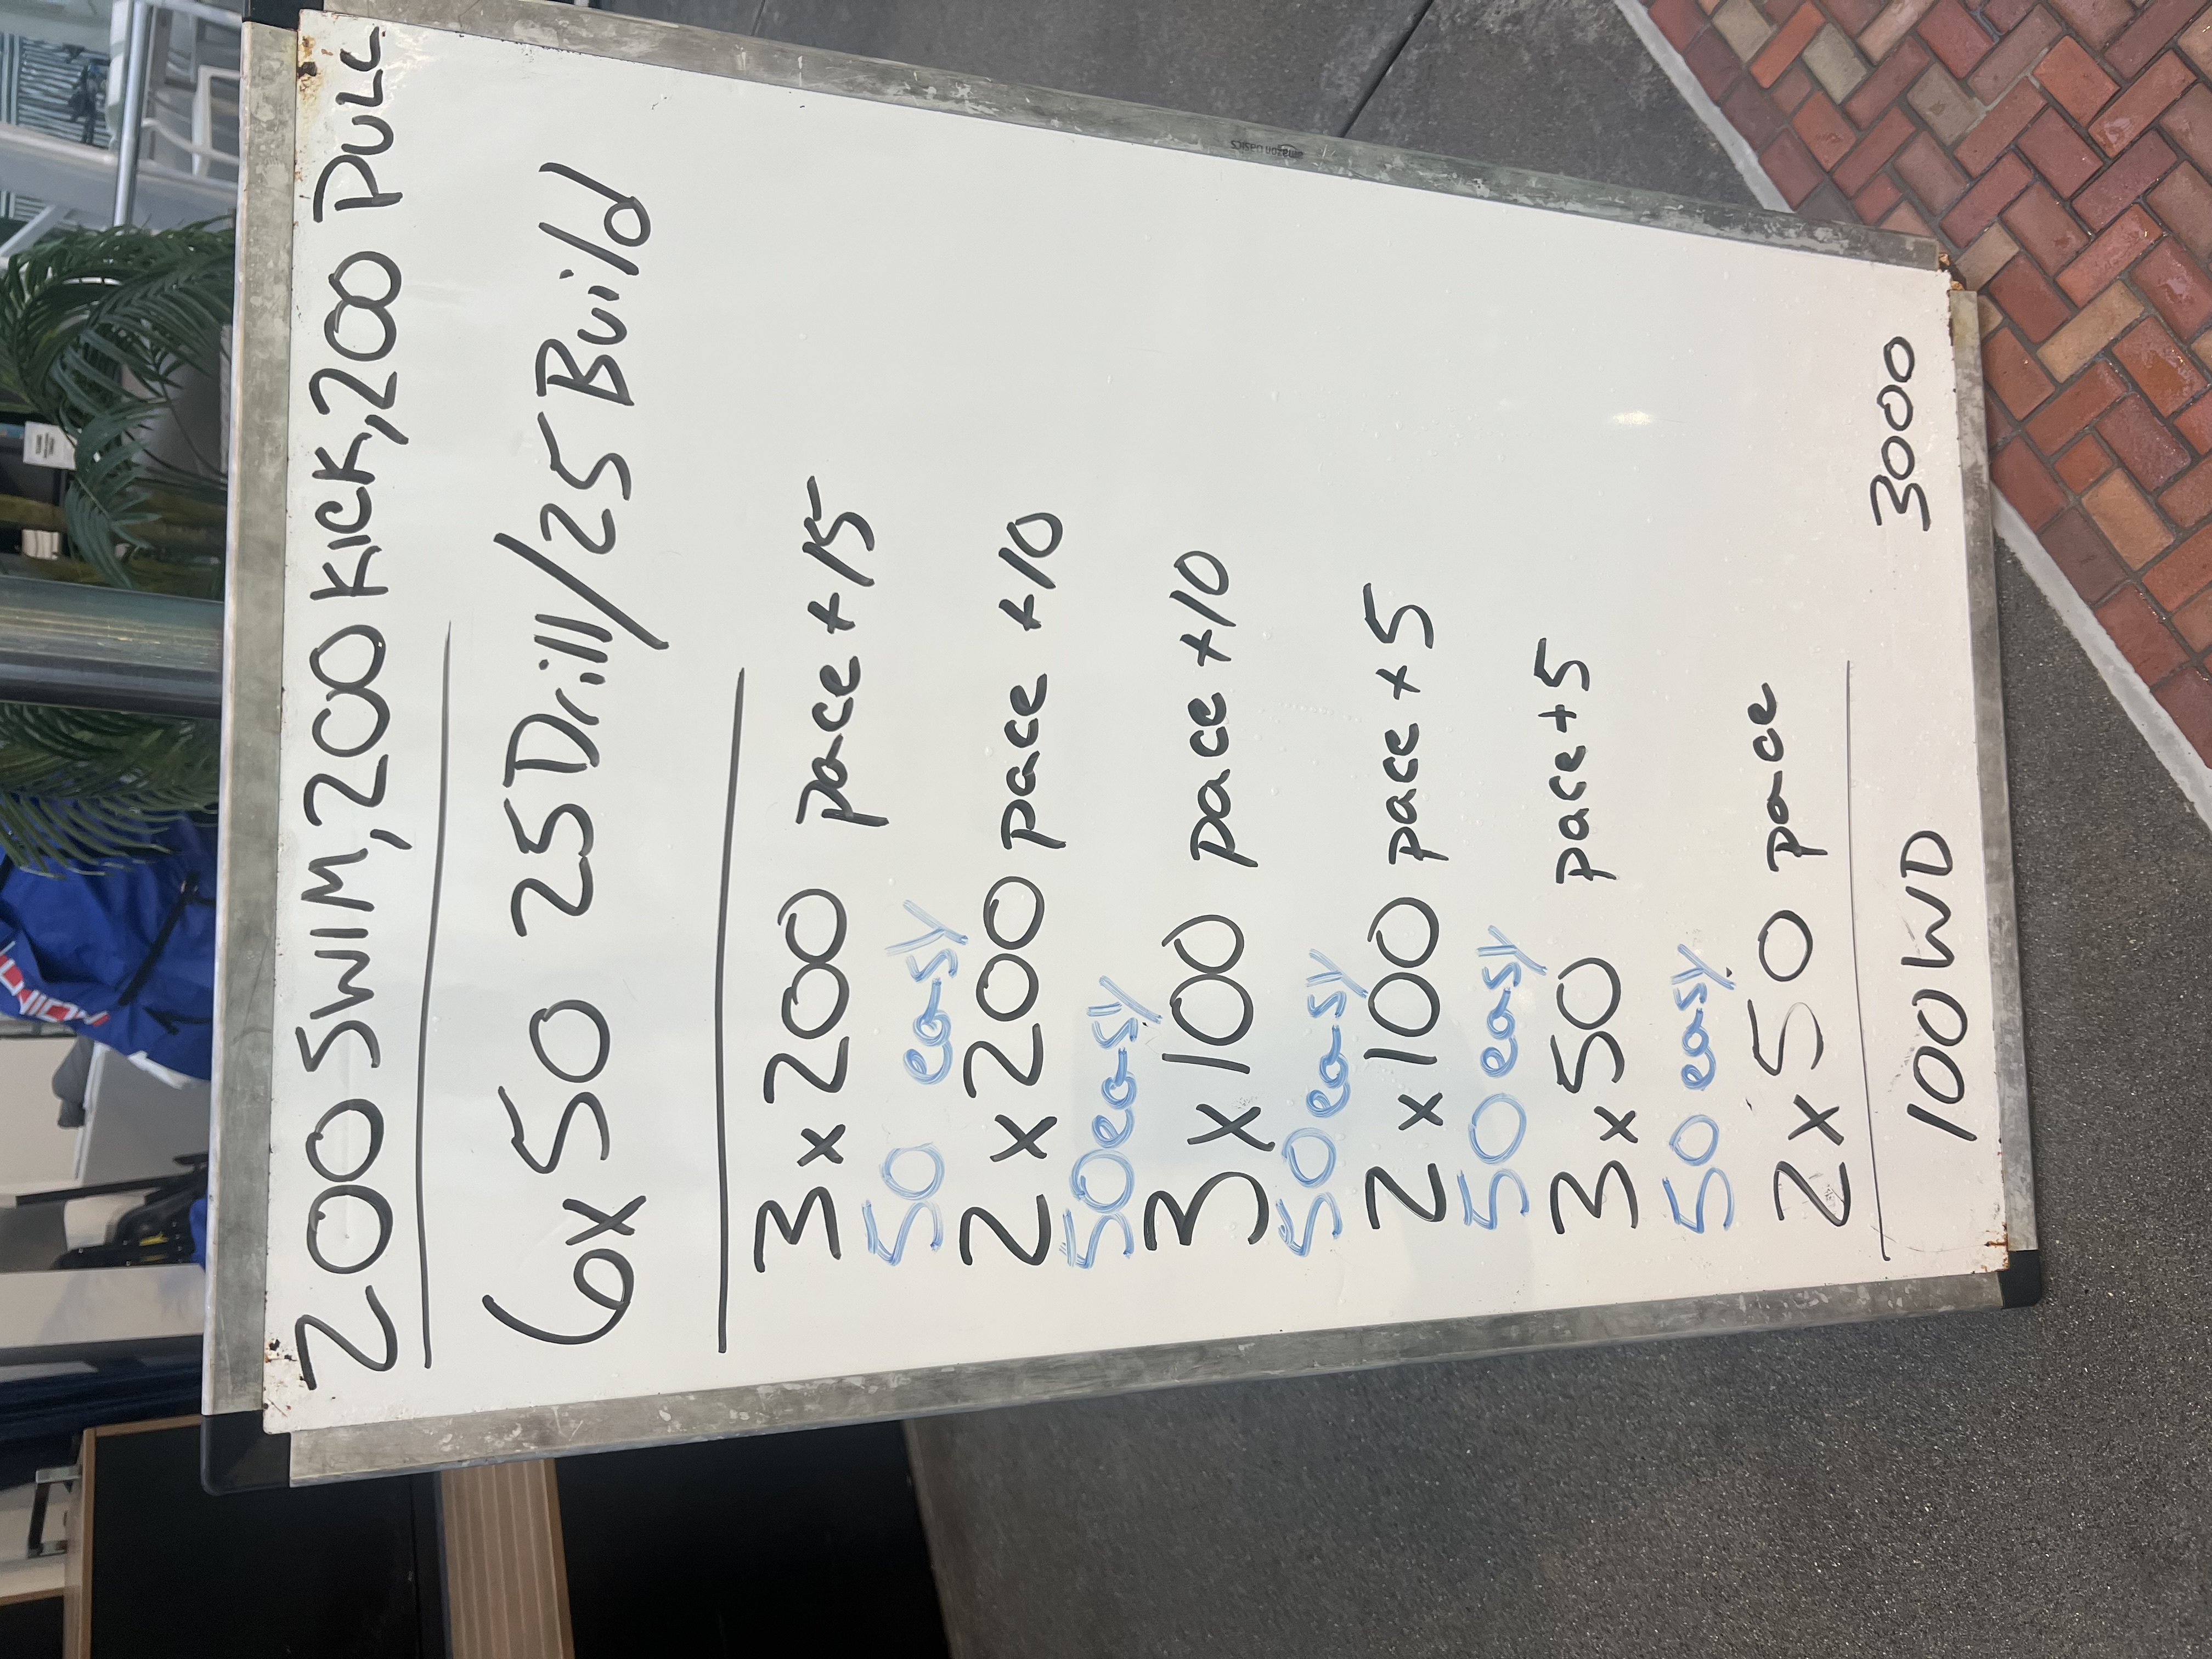 200 SWIM, 200 KICK, 200 PULL
6x 50 25 Drill/25 Build
3 x 200 pace +15
50 easy
2 x 200 pace +10
50 easy
3 x 100 pace +10
50 easy
2 x 100 pace +5
50 easy
3 x 50 pace +5
50 easy
2 x 50 pace
100 WD 3000
amazon basics